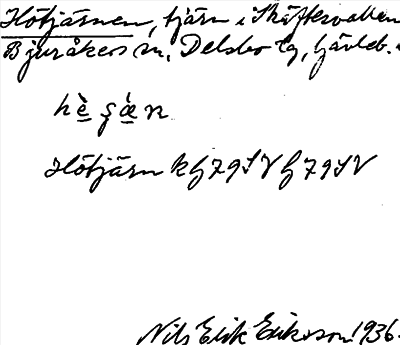 Hötjärnen, tjärn i Skäftervallen
Bjuråkers sn, Delsbo tg, Gävleb.
Hötjärn k G 79 S V G 79 S V
Nils Erik Eriksson 1936.